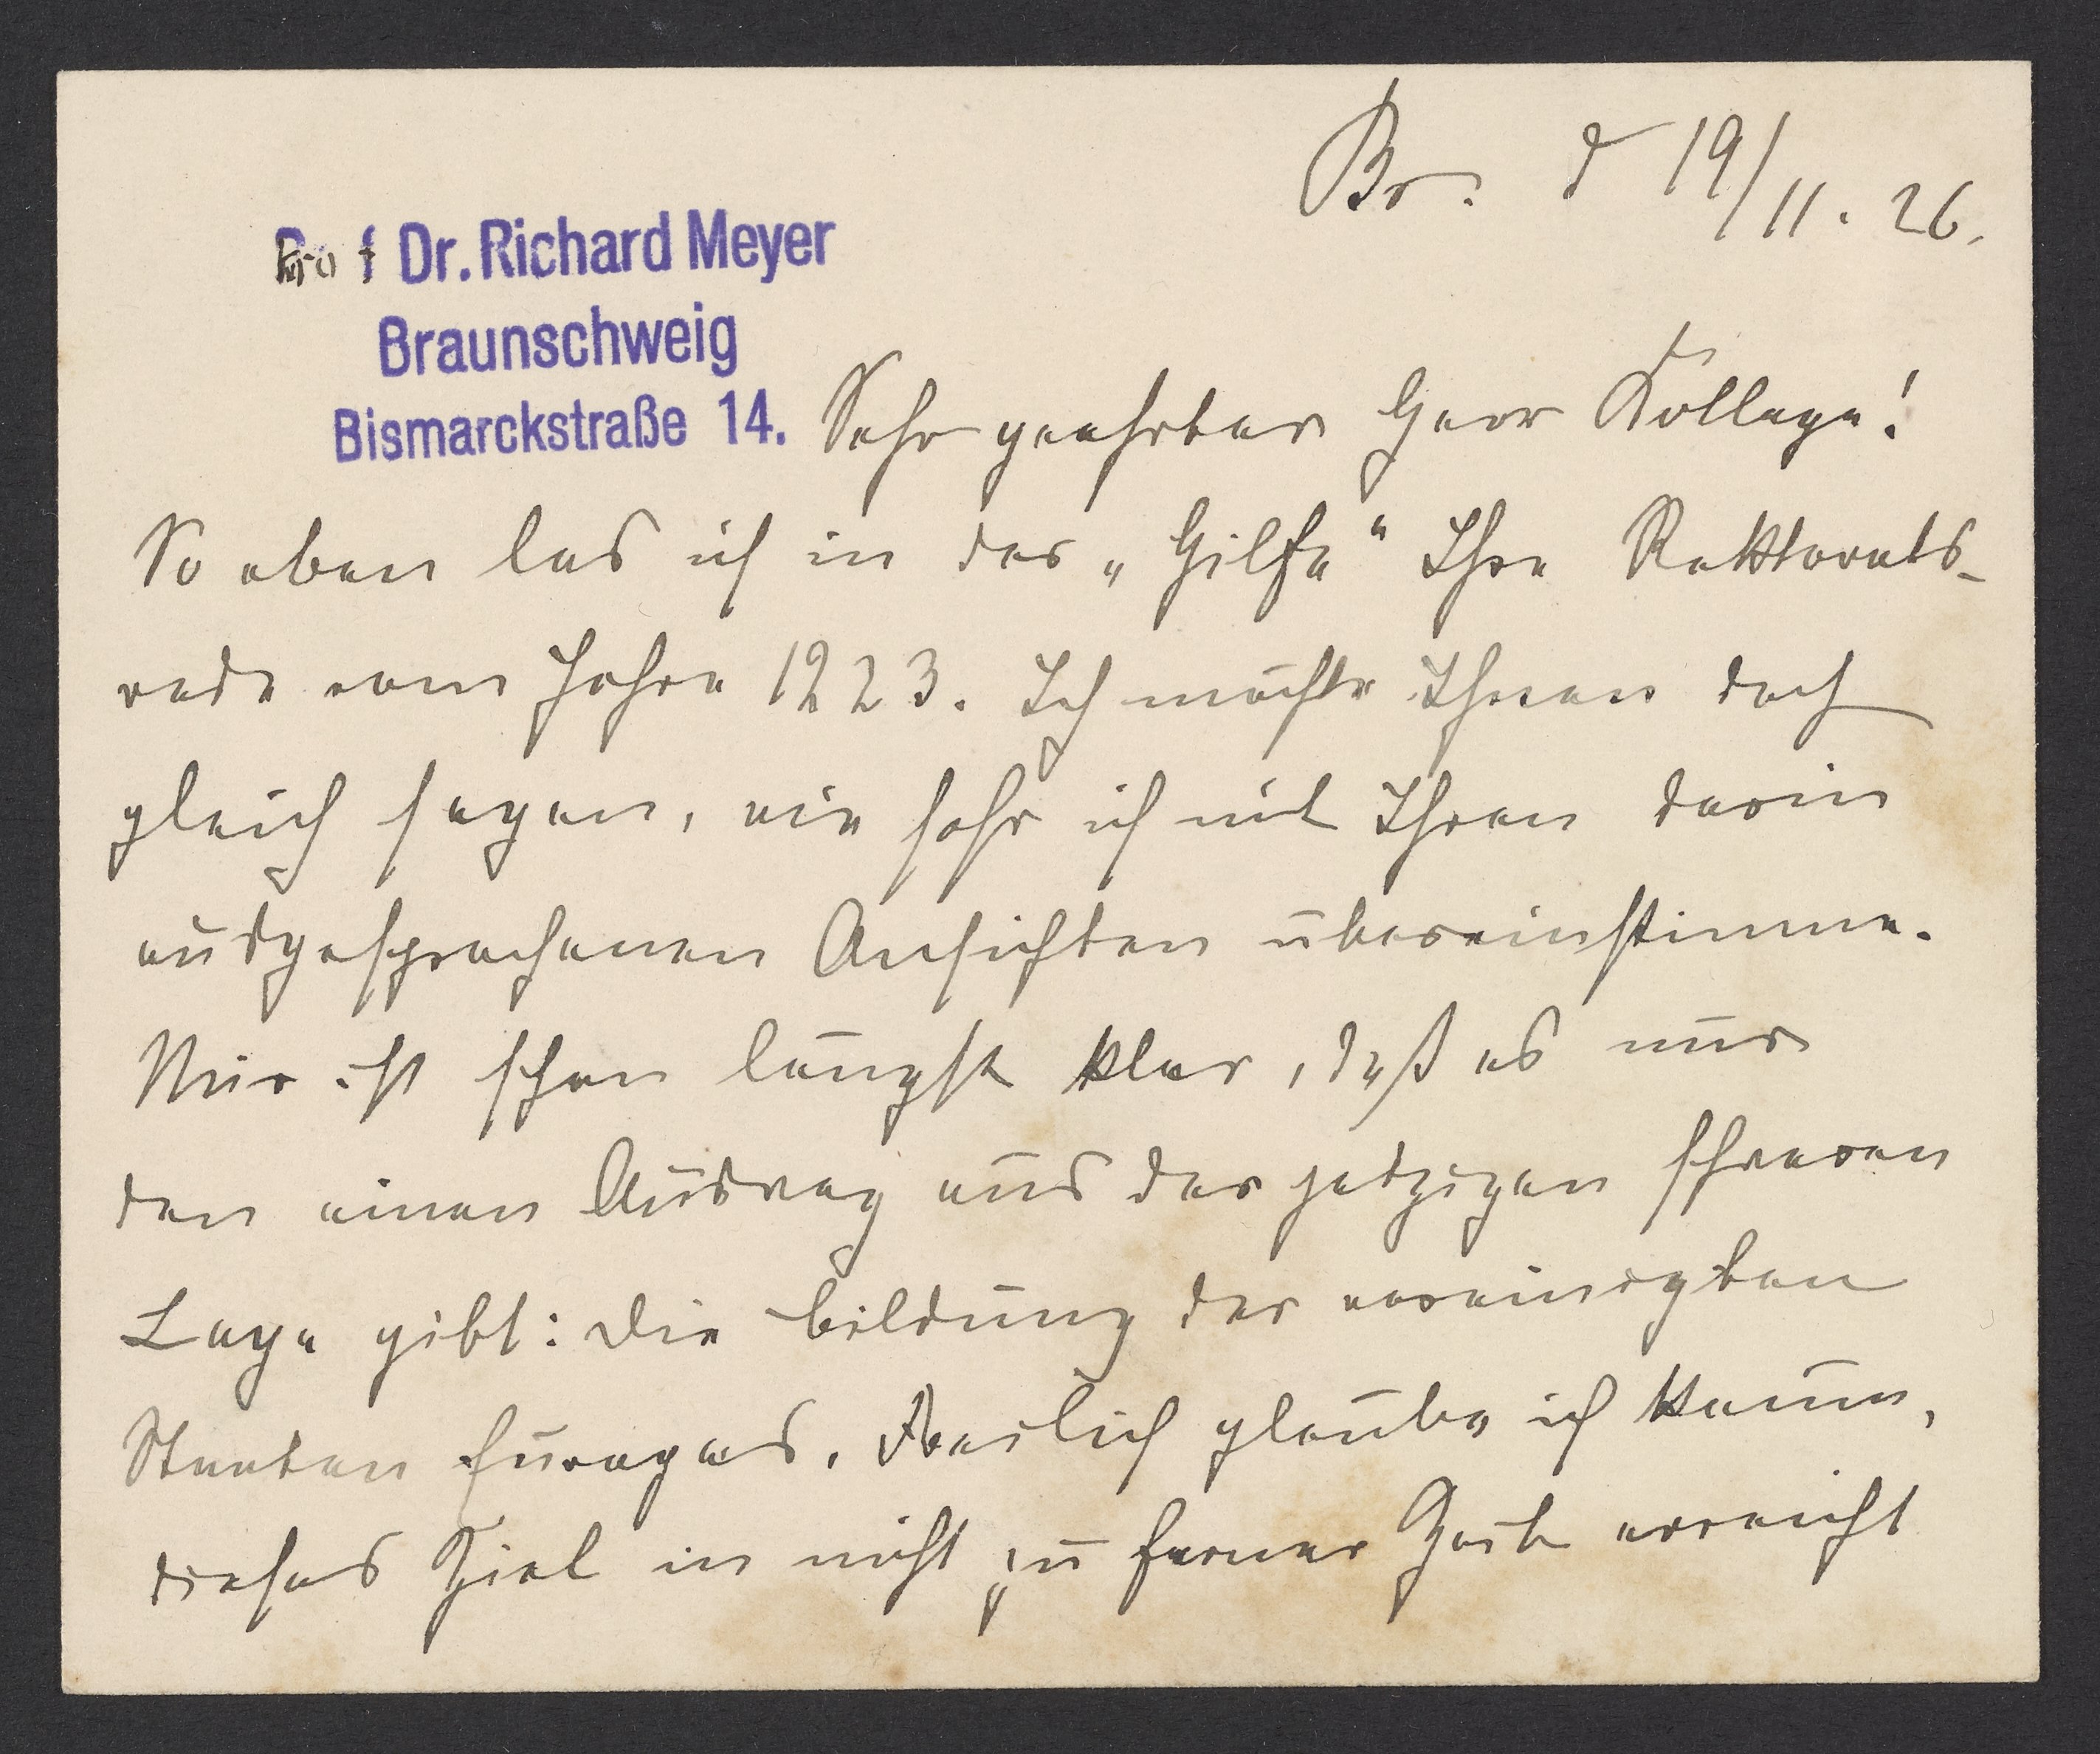 Br. d 19/11. 26.
Prof Dr. Richard Meyer
Braunschweig
Bismarckstraße 14.
Sehr geehrter Herr Kollege!
So eben las ich in der „Hilfe" Ihre Rektorats-
rede vom Jahre 1923. Ich möchte Ihnen doch
gleich sagen, wie sehr ich mit Ihren darin
ausgesprochenen Ansichten übereinstimme.
Mir ist schon längst klar, daß es nur
den einen Ausweg aus der jetzigen schweren
Lage gibt: die Bildung der vereinigten
Staaten Europas. Freilich glaube ich kaum,
dieses Ziel in nicht zu ferner Zeit erreicht